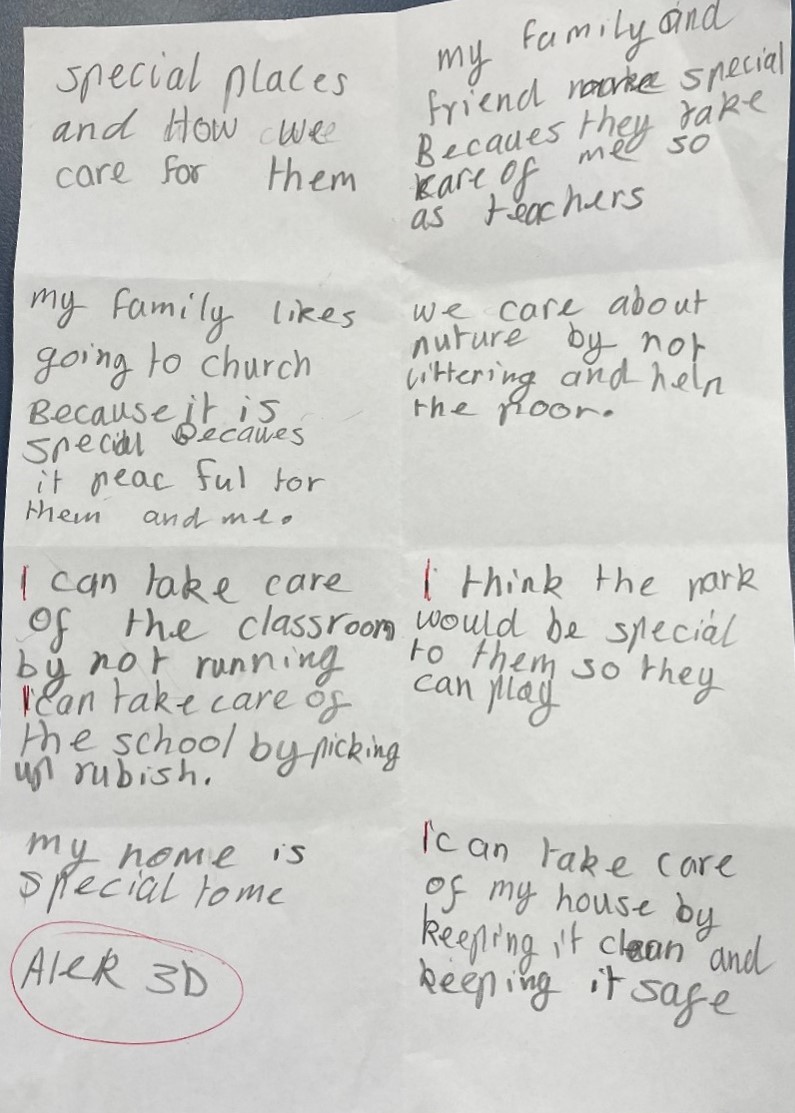 special places
and How we
care for them
my family and
friend special
Becaues they take
kare of me so
as teachers
my family likes
going to church
Because it is
special Becaues
it peac ful for
them and me.
we care about
nuture by not
littering and help
the poor.
I can take care
of the classroom
by not running
I can take care of
the school by picking
up rubish.
I think the park
would be special
to them so they
can play
my home is
special to me
Alek 3D
I can take care
of my house by
keeping it clean and
keeping it safe